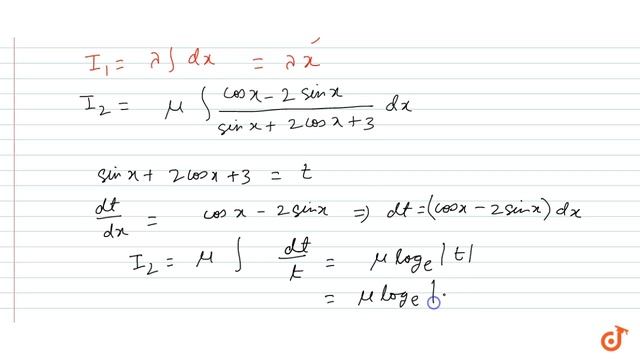 I₁ = λ∫ dx = λx
I₂ = μ ∫ (cos x – 2 sin x)/(sin x + 2 cos x + 3) dx
sin x + 2 cos x + 3 = t
dt/dx = cos x – 2 sin x ⇒ dt = (cos x – 2 sin x) dx
I₂ = μ ∫ dt/t = μ logₑ |t|
= μ logₑ |